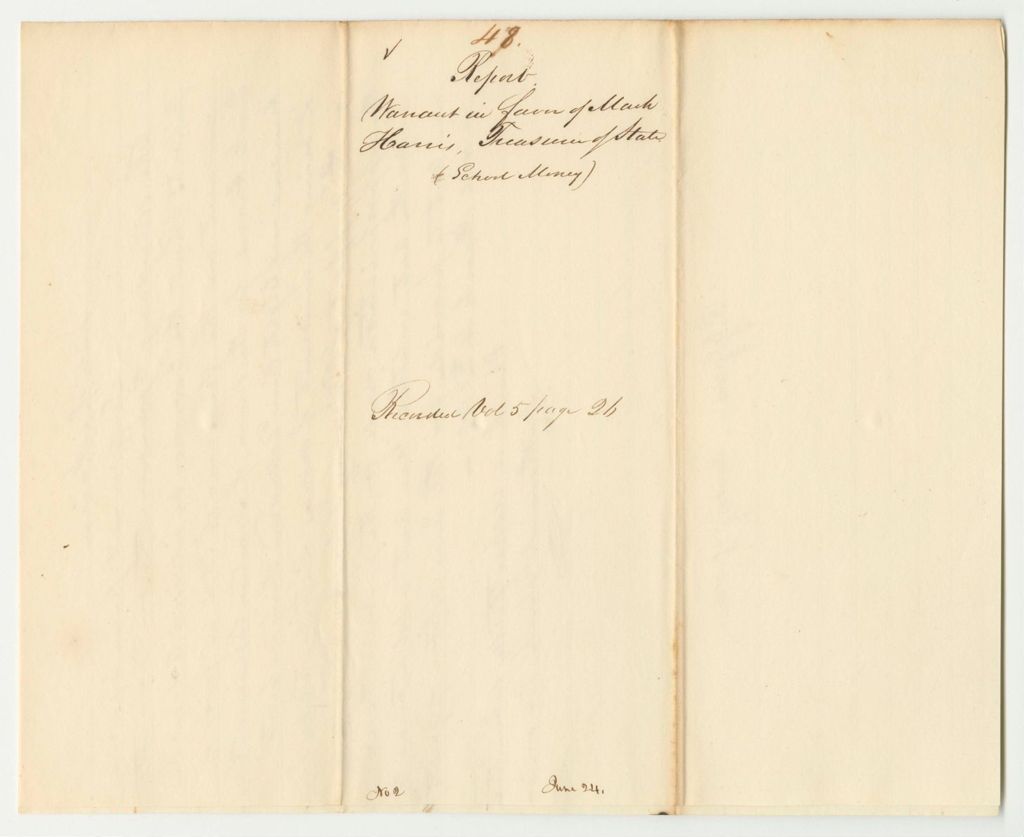 48.
Report.
Warrant in favor of Mark
Harris, Treasurer of State
(School Money)
Recorded Vol 5 page 26
No 2 June 24.